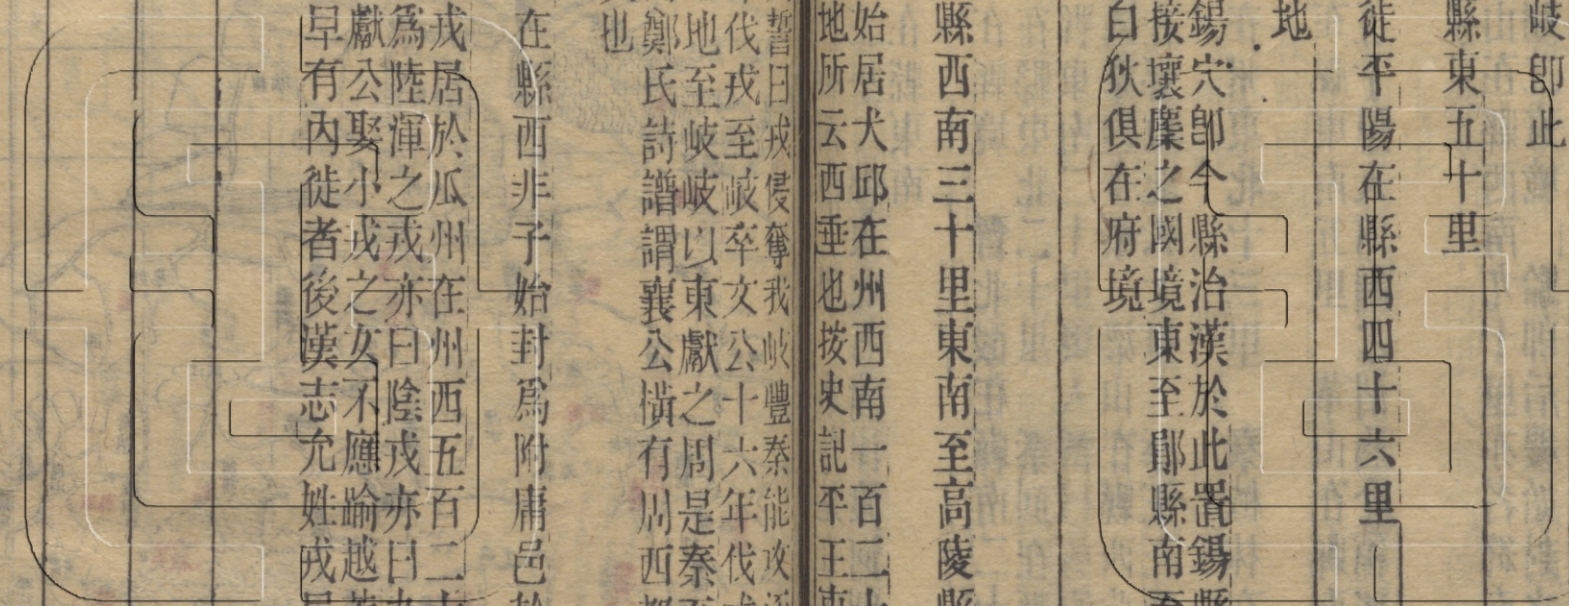 岐卽此
縣東五十里
徙平陽在縣西四十六里
地
錫穴卽今縣治漢於此置錫縣
接壤麇之國境東至鄖縣南
白狄俱在府境
縣西南三十里東南至高陵縣
始居犬邱在州西南一百二十
地所云西垂也按史記平王東
誓曰戎侵奪我岐豐秦能攻逐
伐戎至岐卒文公十六年伐戎
地至岐岐以東獻之周是秦
鄭氏詩譜謂襄公橫有周西都
也
在縣西非子始封爲附庸邑於
戎居於瓜州在州西五百二十
爲陸渾之戎亦曰陰戎亦曰九
獻公娶小戎之女不應踰越
早有內徙者後漢志允姓戎居